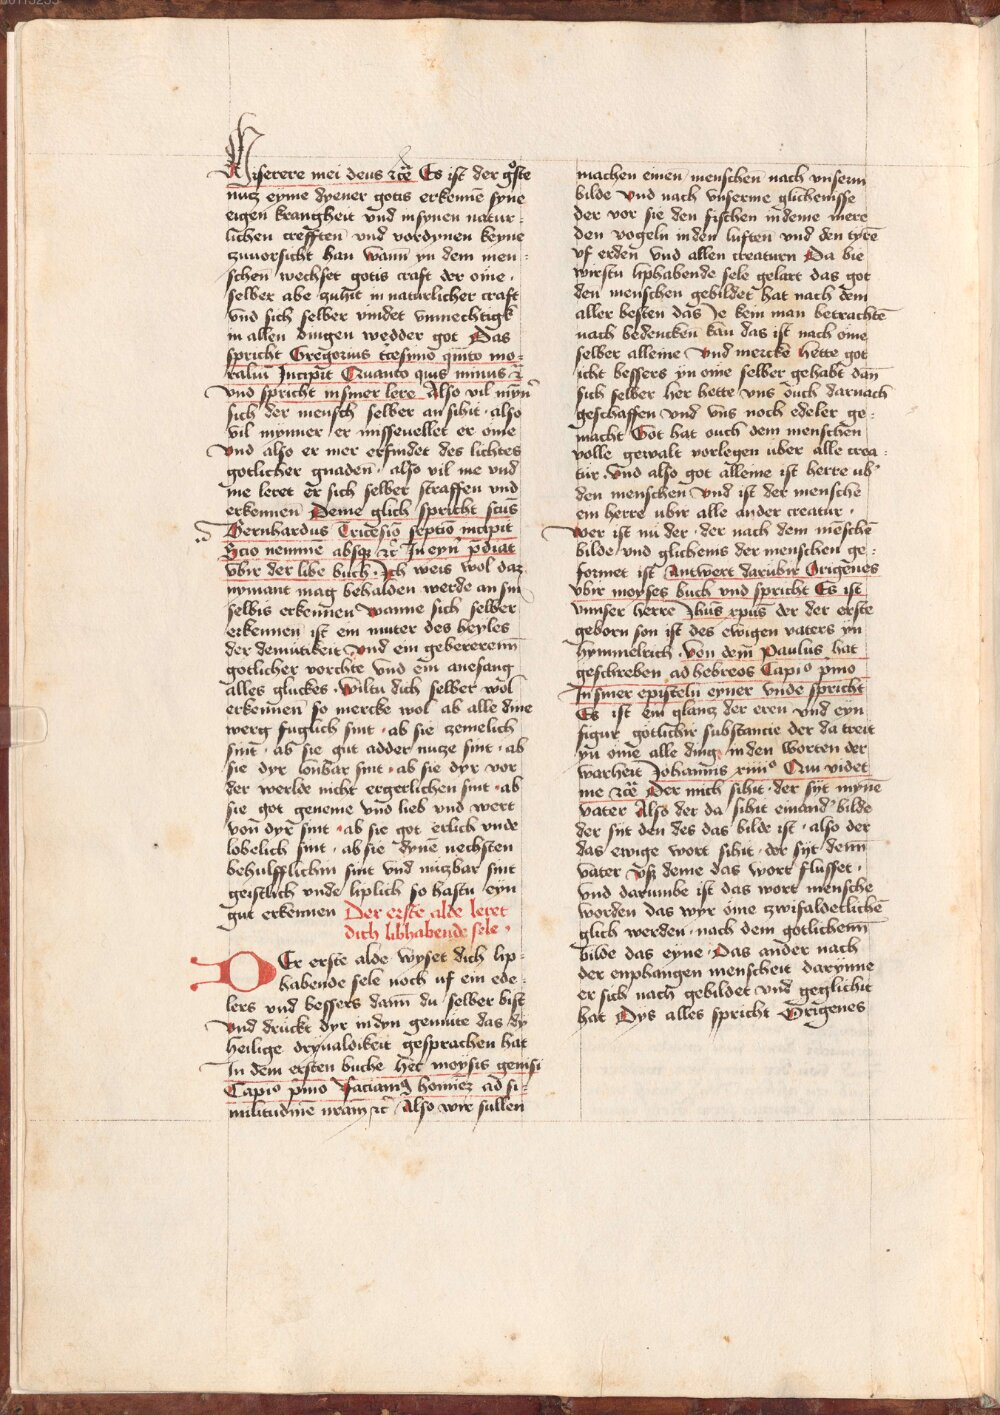 Miserere mei deus ꝛcē Es ist der gͦste
nutz eyme dyener gotis erkennē syne
eigen krangheit vnd in synen natur⸗
lichen crefftē und vordynen keyne
zuuorsicht han wann yn dem men⸗
schen wechset gotis craft der ome·
selber abe zuhit in naturlicher craft
vnd sich selber vindet vnmechtigk
in allen dingen wedder got Das
spricht Gregorius tcesimo qinto mo⸗
raliū Incipit Quanto quis minus ꝛc̄
vnd spricht in siner lere Also vil myn̄
sich der mensch selber an sihit · also
vil mynner er missevellet er ome
vnd also er mer erfindet des lichtes
gotlicher gnaden · also vil me vnd
me leret er sich selber straffen vnd
erkennen Deme glich spricht sctus
Bernhardus Tricesiō septiō incipit
Scio neminē absqꝫ ꝛc̄ In eyn̄ p̄diāt
vbir der libe buch · Ich weis wol daz
nymant mag behalden werde an sin
selbis erkennen wanne sich selber
erkennen ist ein muter des heyles
der demutikeit vnd ein gebererenn
gotlicher vorchte vnd ein anefang
alles gluckes · wiltu dich selber wol
erkennen so mercke wol ab alle dine
werg fuglich sint · ab sie zemelich
sint · ab sie gut adder nutze sint · ab
sie dyr lonbar sint · ab sie dyr vor
der werlde nicht ergerlichen sint · ab
sie got geneme vnd lieb vnd wert
von dyr sint · ab sie got erlich vnde
lobelich sint · ab sie dynē nechsten
behulfflichin sint vnd nutzbar sint
geistlich vnde liplich so hastu eyn
gut erkennen Der erste alde leret
dich libhabende sele ·
DEr erste alde wyset dich lip⸗
habende sele noch uf ein ede⸗
lers vnd bessers dann du selber bist
vnd druckt dyr in dyn gemute das dy
heilige dryualdikeit gesprachen hat
In dem ersten buche het moysis genisi
Capiͦ pͥmo Faciamꝰ homiēz ad si⸗
militudinē nr̄am ꝛc̄ Also wir sullen
machen einen menschen nach vnserm
bilde vnd nach vnserme glichenisse
der vor sie den fischen in deme mere
den vogeln in den luften vnd den tyrē
vf erden vnd allen creaturn Da bie
wirstu liphabende sele gelart das got
den menschen gebildet hat nach dem
aller besten das Je kein man betrachtē
nach bedencken kan das ist nach ome
selber alleine vnd merckē hette got
icht bessers yn ome selber gehabt dan
sich selber her hette vns ouch darnach
geschaffen vnd vns noch edeler ge⸗
macht Got hat ouch dem menschen
volle gewalt vorlegen uber alle crea⸗
tur · vnd also got alleine ist herre ub'
den menschen vnd ist der mensche
ein herre ubir alle ander creatur ·
wer ist nu der · der nach dem mēschē
bilde vnd glichenis der menschen ge⸗
formet ist Antwert darubir Origenes
vbir moyses buch vnd spricht Es ist
vnnser herre Jhūs xpūs der der erste
geborn son ist des ewigen vaters yn
hymmelrich · von dem Paulus hat
geschreben ad hebreos Capiͦ pmo
In siner episteln eyner vnde spricht
Es ist ein glantz der eren vnd eyn
figur gotlichir substantie der da treit
yn ome alle ding in den worten der
warheit Johannis xiiijͦ Qui videt
me ꝛcē Der mich sihit · der siit mynē
vater Also der da sihit eimand' bilde
der siit den des das bilde ist · also der
das ewige wort sihit · der siit denn
vater vß deme das wort flusset ·
vnd darumbe ist das wort mensche
worden das wyr ome zwifaldetlichē
glich werden · nach dem gotlichenn
bilde das eyne · Das ander nach
der enphangen menscheit darynne
er sich nach gebildet vnd geglichit
hat Dys alles spricht Origenes